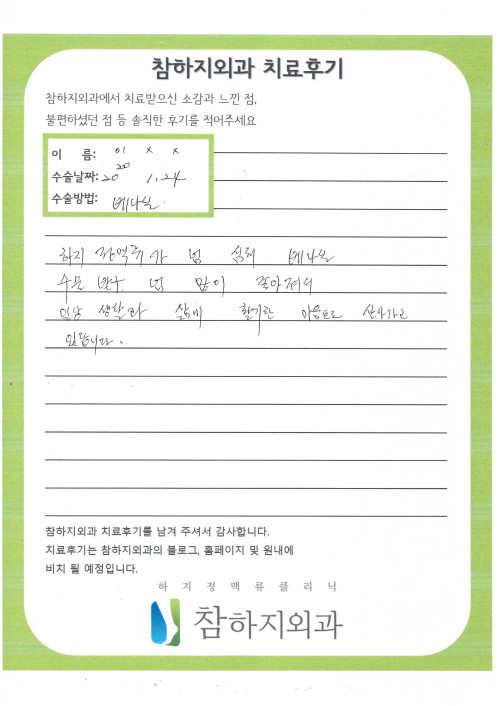 참하지외과 치료후기
참하지외과에서 치료받으신 소감과 느낀 점,
불편하셨던 점 등 솔직한 후기를 적어주세요
이 름: 이 x x
수술날짜: 2020 1.24
수술방법: 베나실
하지 정맥류가 넘 심해 베나실
수술 받구 넘 많이 좋아져서
일상 생활과 삶에 활기찬 마음으로 살아가고
있답니다.
참하지외과 치료후기를 남겨 주셔서 감사합니다.
치료후기는 참하지외과의 블로그, 홈페이지 및 원내에
비치 될 예정입니다.
하지정맥류클리닉
참하지외과